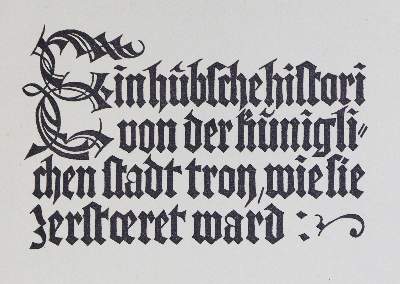 Ein hübsche histori
von der künigli⸗
chen stadt troy, wie sie
zerstœret ward :